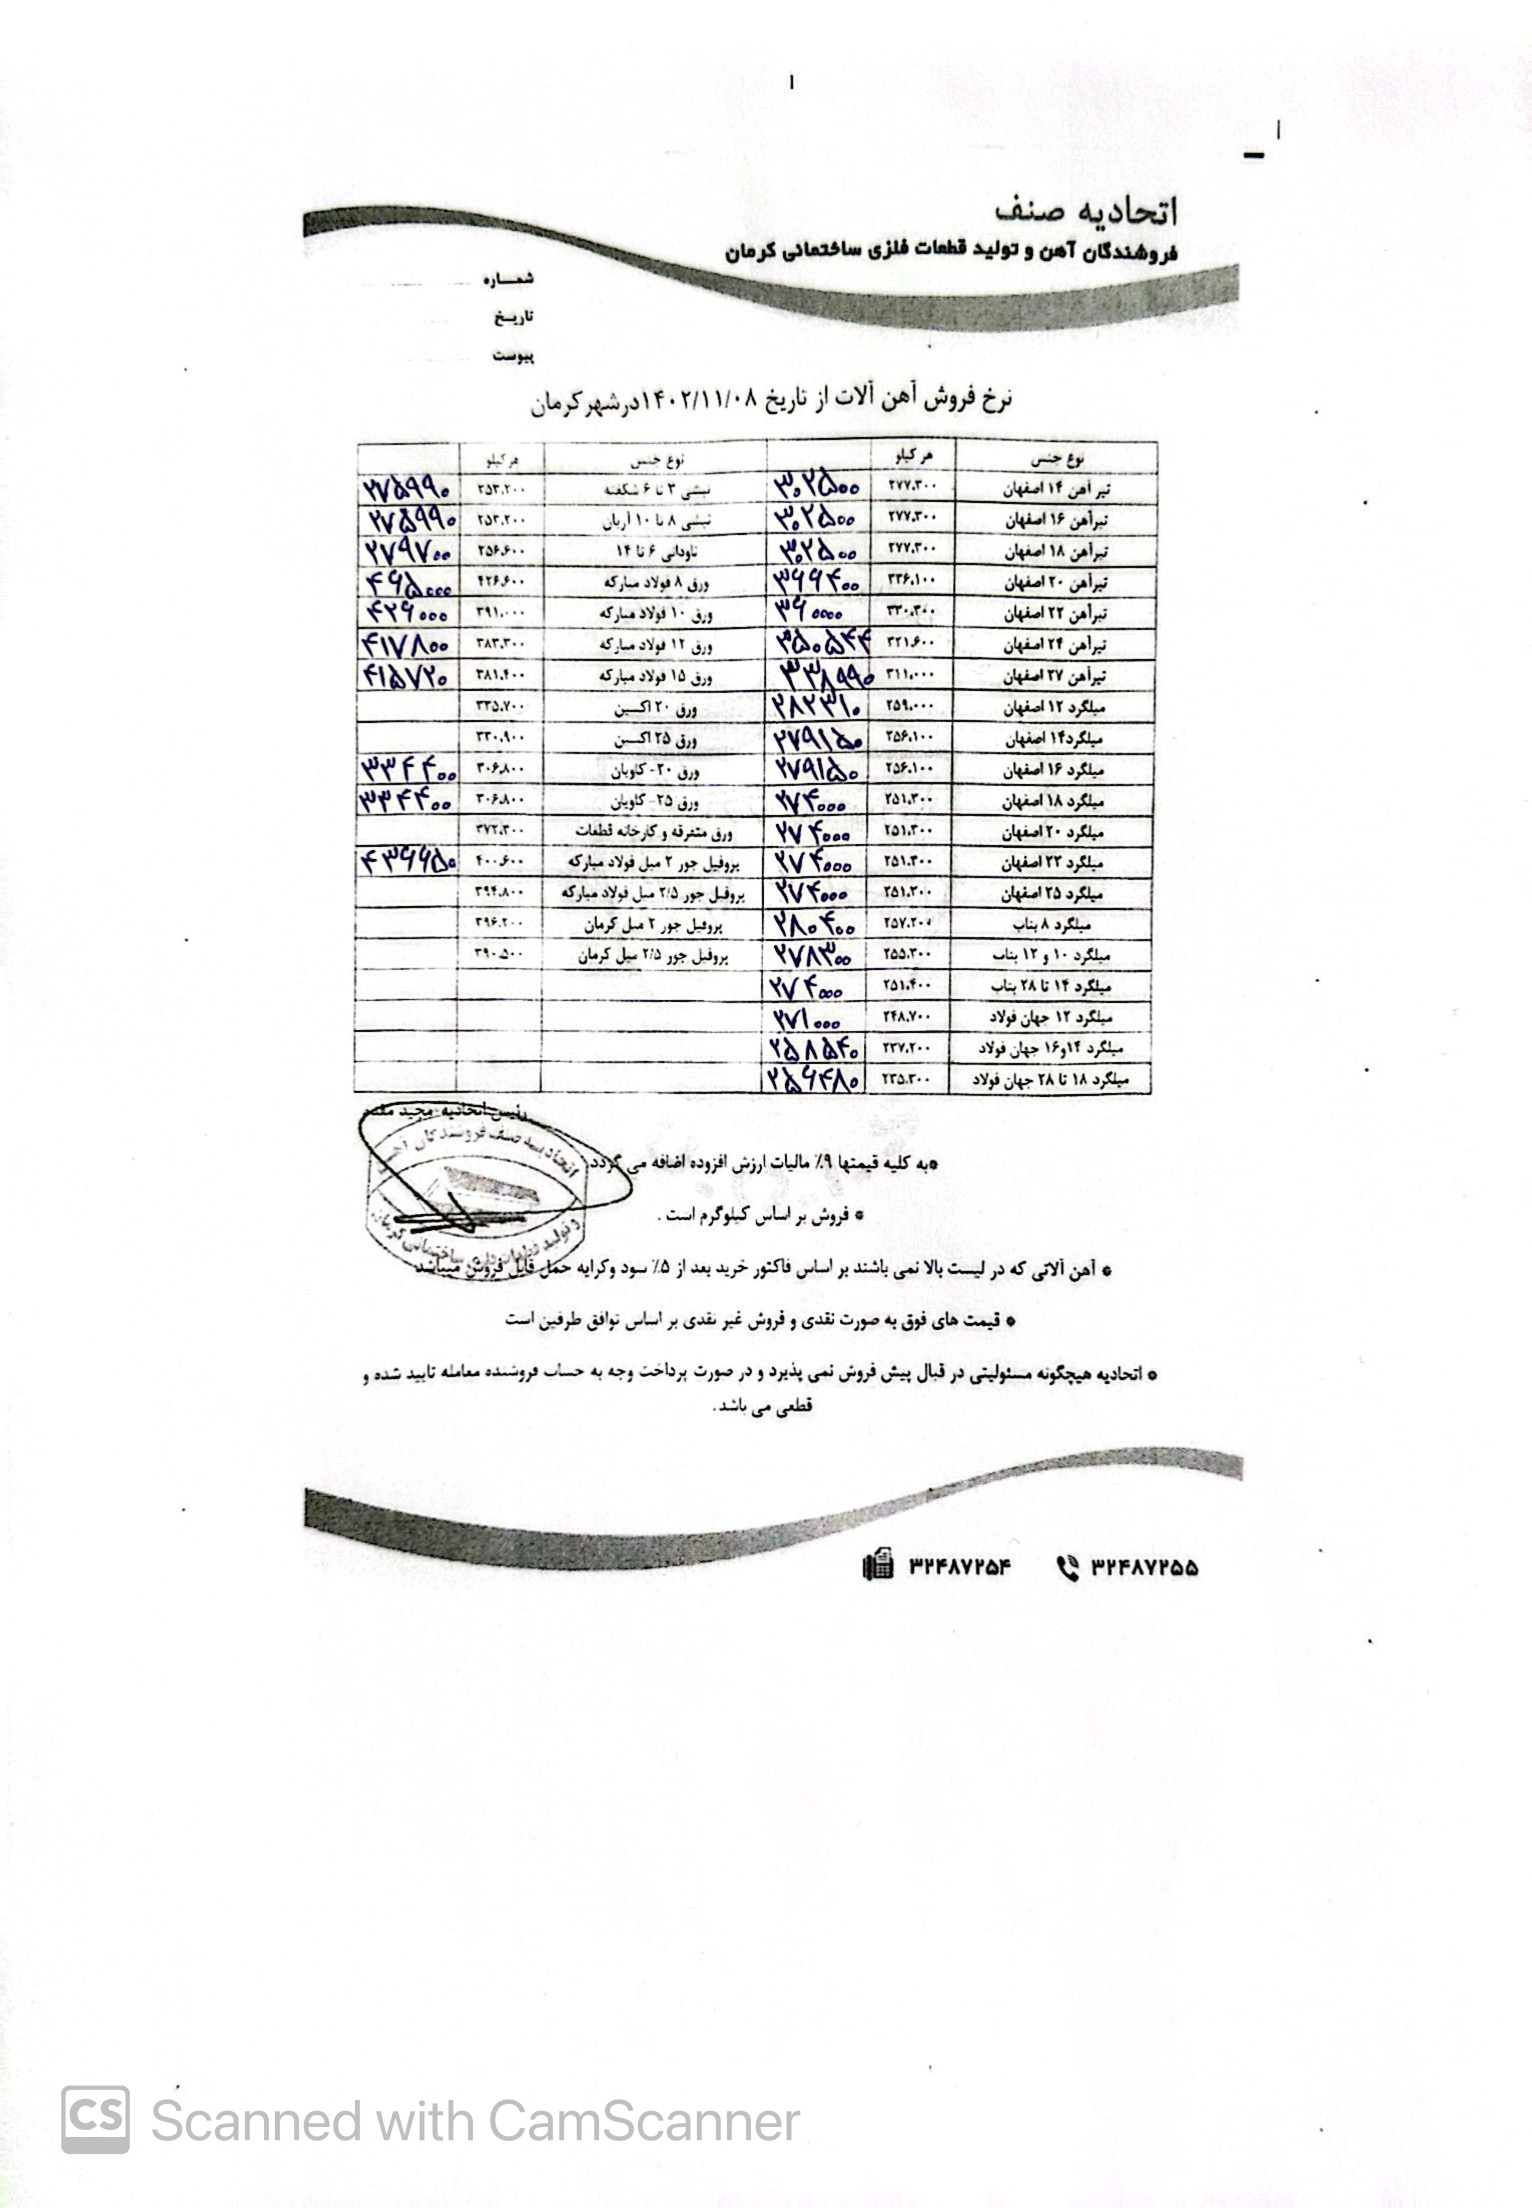 اتحادیه صنف
فروشندگان آهن و تولید قطعات فلزی ساختمانی کرمان
شماره
تاریخ
پیوست
نرخ فروش آهن آلات از تاریخ ۱۴۰۲/۱۱/۰۸ درشهرکرمان
نوع جنس هر کیلو نوع جنس هرکیلو
تیر آهن ۱۴ اصفهان ۲۷۷.۳۰۰ ۳۰۲۵۰۰ نبشی ۳ تا ۶ شکفته ۲۵۳.۲۰۰ ۲۷۵۹۹۰
تیرآهن ۱۶ اصفهان ۲۷۷.۳۰۰ ۳۰۲۵۰۰ نبشی ۸ تا ۱۰ آریان ۲۵۳.۲۰۰ ۲۷۵۹۹۰
تیرآهن ۱۸ اصفهان ۲۷۷.۳۰۰ ۳۰۲۵۰۰ ناودانی ۶ تا ۱۴ ۲۵۶.۶۰۰ ۲۷۹۷۰۰
تیرآهن ۲۰ اصفهان ۳۳۶.۱۰۰ ۳۶۶۴۰۰ ورق ۸ فولاد مبارکه ۴۲۶.۶۰۰ ۴۶۵۰۰۰
تیرآهن ۲۲ اصفهان ۳۳۰.۳۰۰ ۳۶۰۰۰۰ ورق ۱۰ فولاد مبارکه ۳۹۱.۰۰۰ ۴۲۶۰۰۰
تیرآهن ۲۴ اصفهان ۳۲۱.۶۰۰ ۳۵۰۵۴۴ ورق ۱۲ فولاد مبارکه ۳۸۳.۳۰۰ ۴۱۷۸۰۰
تیرآهن ۲۷ اصفهان ۳۱۱.۰۰۰ ۳۳۸۹۹۰ ورق ۱۵ فولاد مبارکه ۳۸۱.۴۰۰ ۴۱۵۷۲۰
میلگرد ۱۲ اصفهان ۲۵۹.۰۰۰ ۲۸۲۳۱۰ ورق ۲۰ اکسین ۳۳۵.۷۰۰
میلگرد۱۴ اصفهان ۲۵۶.۱۰۰ ۲۷۹۱۵۰ ورق ۲۵ اکسن ۳۳۰.۹۰۰
میلگرد ۱۶ اصفهان ۲۵۶.۱۰۰ ۲۷۹۱۵۰ ورق ۲۰- کاویان ۳۰۶.۸۰۰ ۳۳۴۴۰۰
میلگرد ۱۸ اصفهان ۲۵۱.۳۰۰ ۲۷۴۰۰۰ ورق ۲۵- کاویان ۳۰۶.۸۰۰ ۳۳۴۴۰۰
میلگرد ۲۰ اصفهان ۲۵۱.۳۰۰ ۲۷۴۰۰۰ ورق متفرقه و کارخانه قطعات ۳۷۲.۳۰۰
میلگرد ۲۲ اصفهان ۲۵۱.۳۰۰ ۲۷۴۰۰۰ پروفیل جور ۲ میل فولاد مبارکه ۴۰۰.۶۰۰ ۴۳۶۶۵۰
میلگرد ۲۵ اصفهان ۲۵۱.۳۰۰ ۲۷۴۰۰۰ پروفیل جور ۲/۵ میل فولاد مبارکه ۳۹۴.۸۰۰
میلگرد ۸ بناب ۲۵۷.۲۰۰ ۲۸۰۴۰۰ پروفیل جور ۲ میل کرمان ۳۹۶.۲۰۰
میلگرد ۱۰ و ۱۲ بناب ۲۵۵.۳۰۰ ۲۷۸۳۰۰ پروفیل جور ۲/۵ میل کرمان ۳۹۰.۵۰۰
میلگرد ۱۴ تا ۲۸ بناب ۲۵۱.۴۰۰ ۲۷۴۰۰۰
میلگرد ۱۲ جهان فولاد ۲۴۸.۷۰۰ ۲۷۱۰۰۰
میلگرد ۱۴و۱۶ جهان فولاد ۲۳۷.۲۰۰ ۲۵۸۵۴۰
میلگرد ۱۸ تا ۲۸ جهان فولاد ۲۳۵.۳۰۰ ۲۵۶۴۸۰
رئیس اتحادیه-مجید
اتحادیه صنف فروشندگان آهن
و تولید قطعات فلزی ساختمانی کرمان
*به کلیه قیمتها ۹٪ مالیات ارزش افزوده اضافه می گردد.
* فروش بر اساس کیلوگرم است .
* آهن آلاتی که در لیست بالا نمی باشند بر اساس فاکتور خرید بعد از ۵٪ سود وکرایه حمل قابل فروش میباشد
* قیمت های فوق به صورت نقدی و فروش غیر نقدی بر اساس توافق طرفین است
* اتحادیه هیچگونه مسئولیتی در قبال پیش فروش نمی پذیرد و در صورت پرداخت وجه به حساب فروشنده معامله تایید شده و
قطعی می باشد.
۳۲۴۸۷۲۵۵ ۳۲۴۸۷۲۵۴
CS Scanned with CamScanner